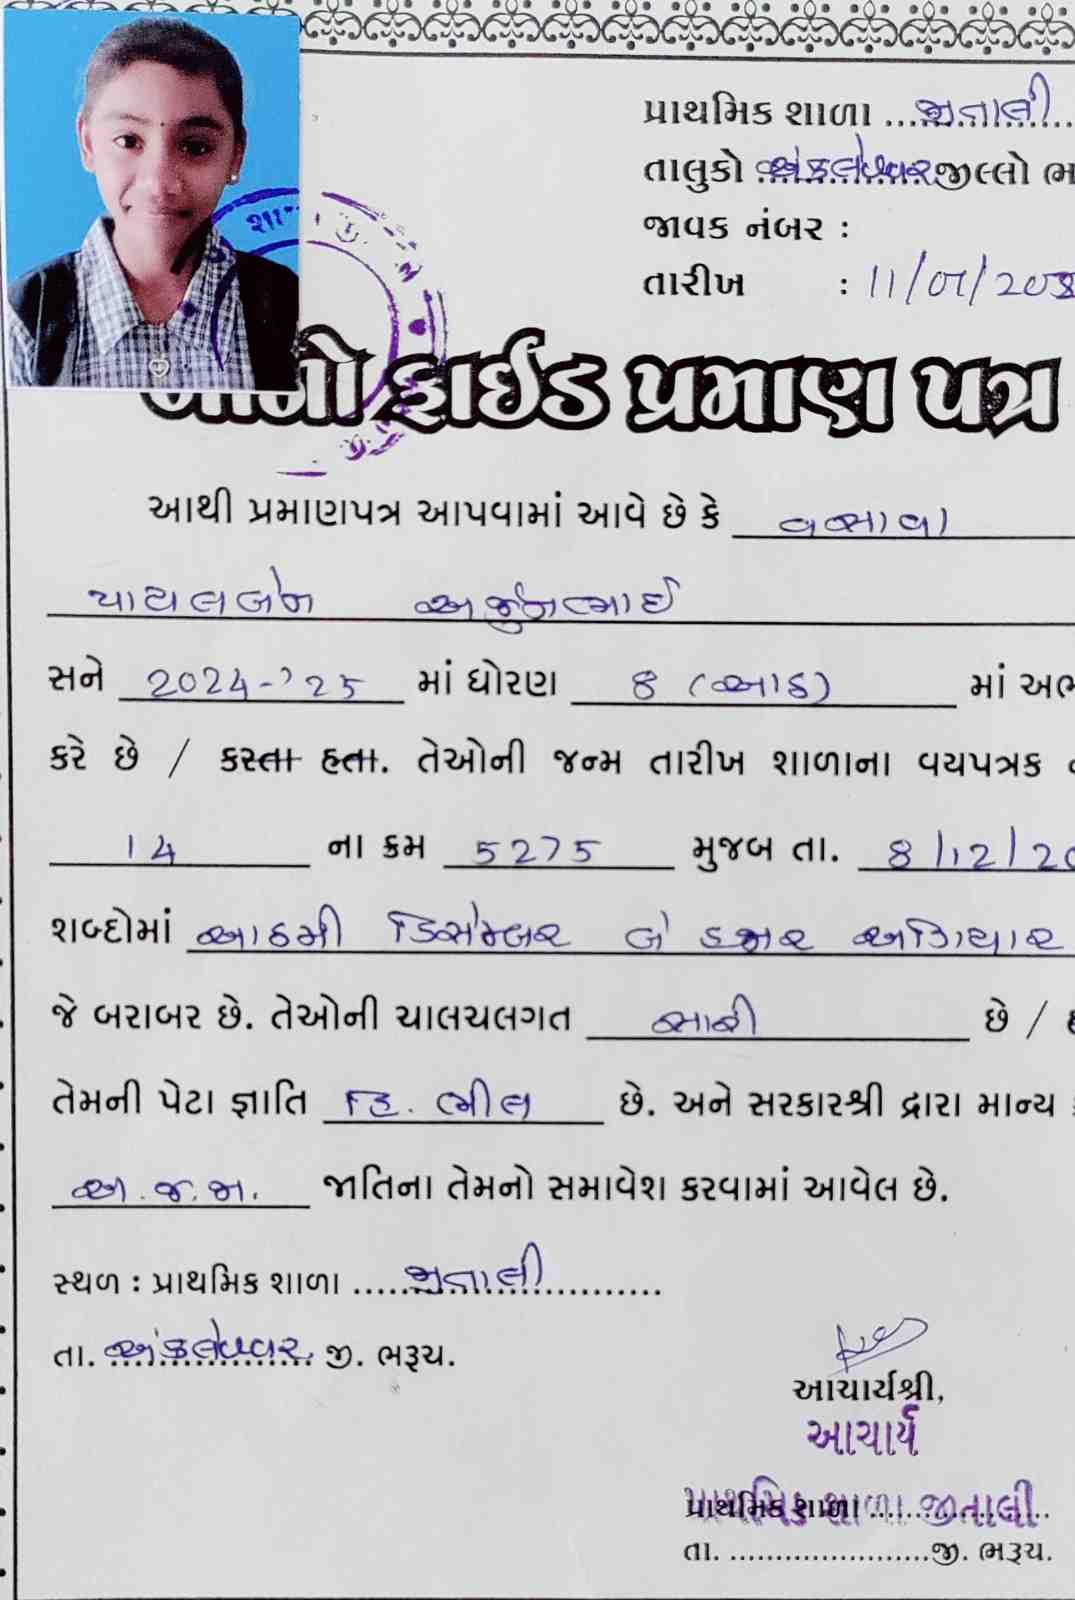 પ્રાથમિક શાળા ....જીતાલી....
તાલુકો અંકલેશ્વર જીલ્લો
જાવક નંબર :
તારીખ : 11/01/20
બોનો ફાઈડ પ્રમાણ પત્ર
આથી પ્રમાણપત્ર આપવામાં આવે છે કે વસાવા
પાયલબેન અર્જુનભાઈ
સને 2024-'25 માં ધોરણ 8 (આઠ) માં અભ
કરે છે / કરતા હતા. તેઓની જન્મ તારીખ શાળાના વયપત્રક
14 ના ક્રમ 5275 મુજબ તા. 8/12/20
શબ્દોમાં આઠમી ડિસેમ્બર બે હજાર અગિયાર
જે બરાબર છે. તેઓની ચાલચલગત સારી છે /
તેમની પેટા જ્ઞાતિ હિ. ભીલ છે. અને સરકારશ્રી દ્વારા માન્ય
અ.જ.જા. જાતિના તેમનો સમાવેશ કરવામાં આવેલ છે.
સ્થળ : પ્રાથમિક શાળા ....જીતાલી....
તા. અંકલેશ્વર જી. ભરૂચ.
આચાર્યશ્રી,
આચાર્ય
પ્રાથમિક શાળા જીતાલી
પ્રાથમિક શાળા ....................
તા. ......................જી. ભરૂચ.